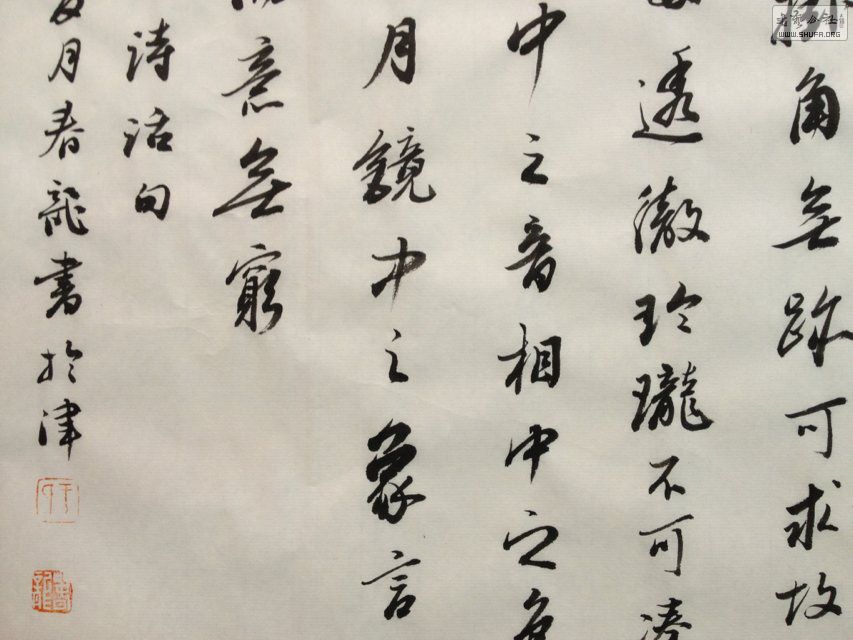 角無跡可求故
透徹玲瓏不可湊
中之音相中之色
月鏡中之象言
意無窮
诗话句
月春龍書於津
WWW.SHUFA.ORG